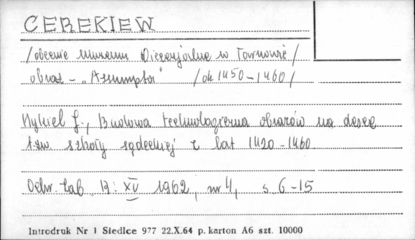 CEREKIEW
/obecnie Muzeum Diecezjalne w Tarnowie/
obraz - "Assumpta" /ok 1450-1460/
Nykiel J., Budowa technologiczna obrazów na desce
t.zw. szkoły sądeckiej z lat 1420-1460
Ochr. Zab. R: XV 1962, nr 4, s. 6-15
Introdruk Nr 1 Siedlce 977 22.X.64 p. karton A6 szt. 10000